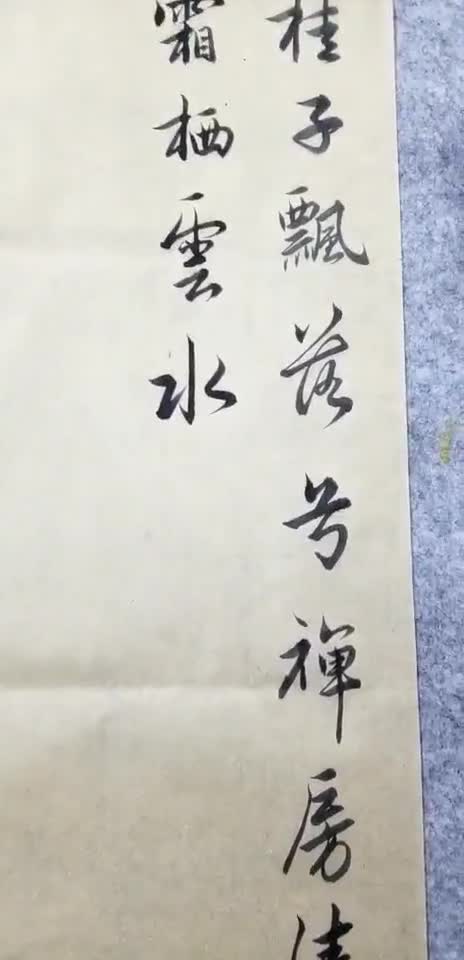 桂子飄落兮禪房清
霜栖雲水